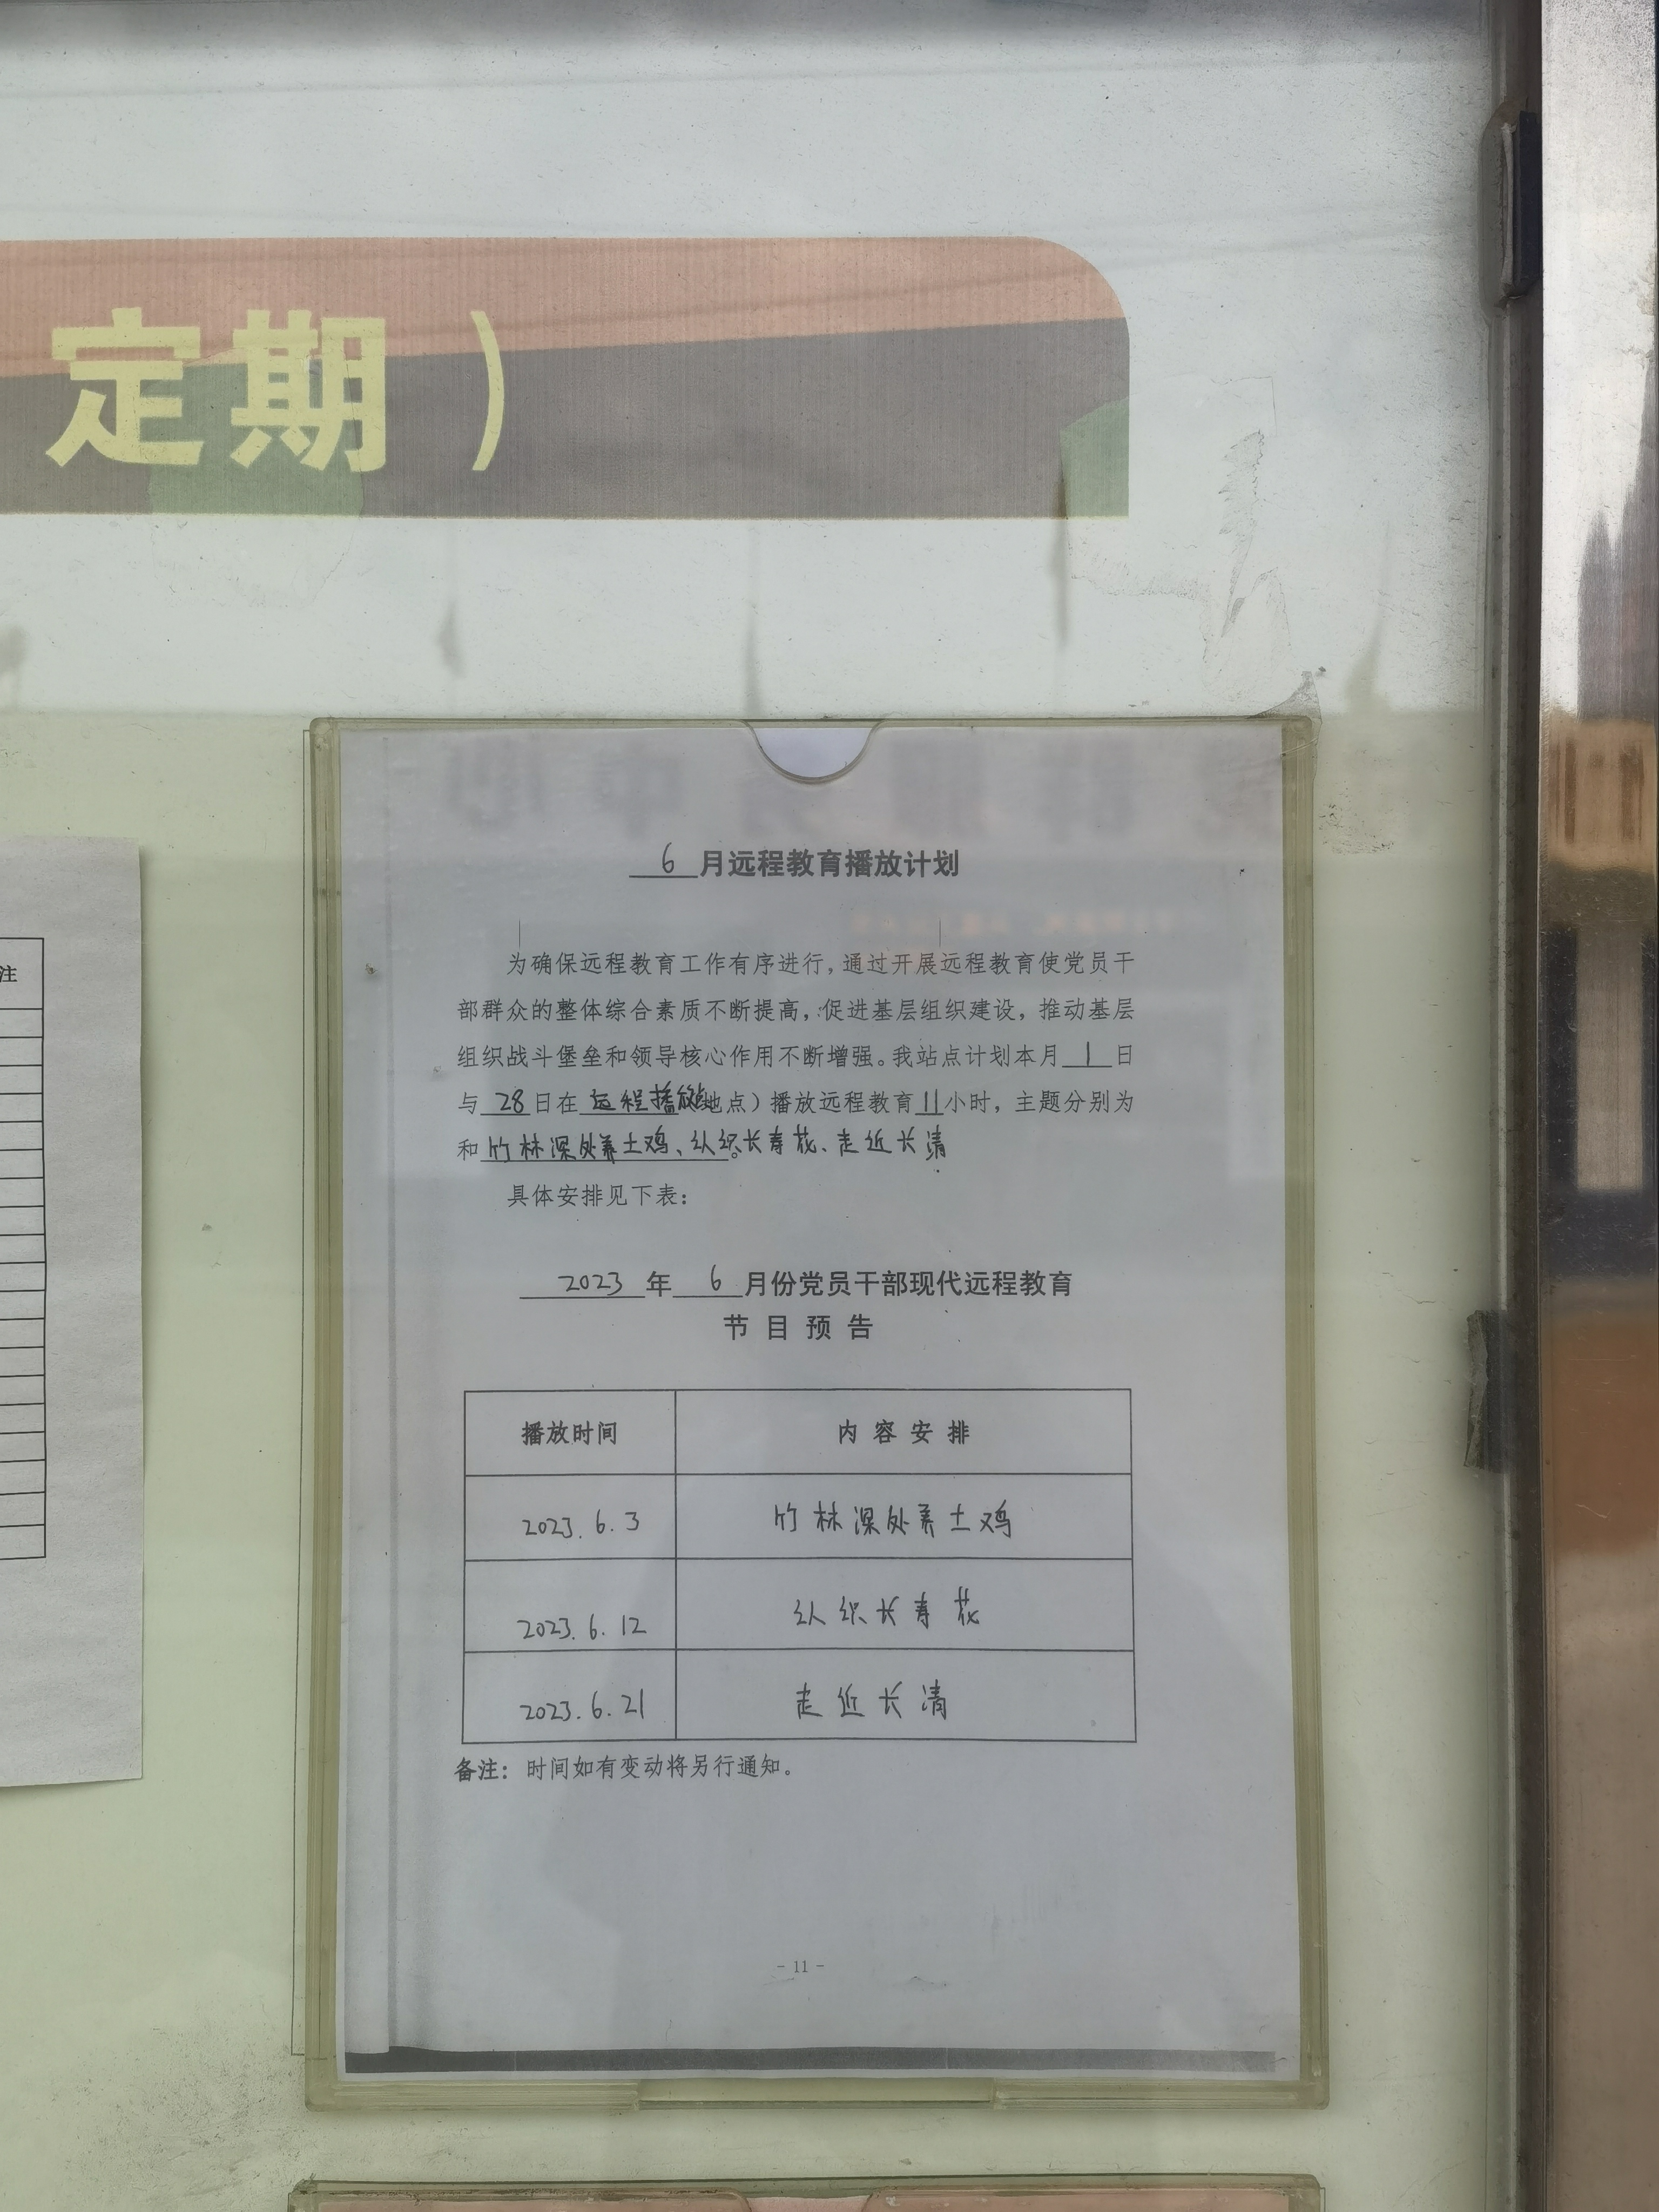 定期）
注
6月远程教育播放计划
为确保远程教育工作有序进行，通过开展远程教育使党员干
部群众的整体综合素质不断提高，促进基层组织建设，推动基层
组织战斗堡垒和领导核心作用不断增强。我站点计划本月1日
与28日在远程播放站地点）播放远程教育11小时，主题分别为
和竹林深处养土鸡、认识长寿花、走近长清。
具体安排见下表：
2023年6月份党员干部现代远程教育
节目预告
播放时间 内容安排
2023.6.3 竹林深处养土鸡
2023.6.12 认识长寿花
2023.6.21 走近长清
备注：时间如有变动将另行通知。
- 11 -